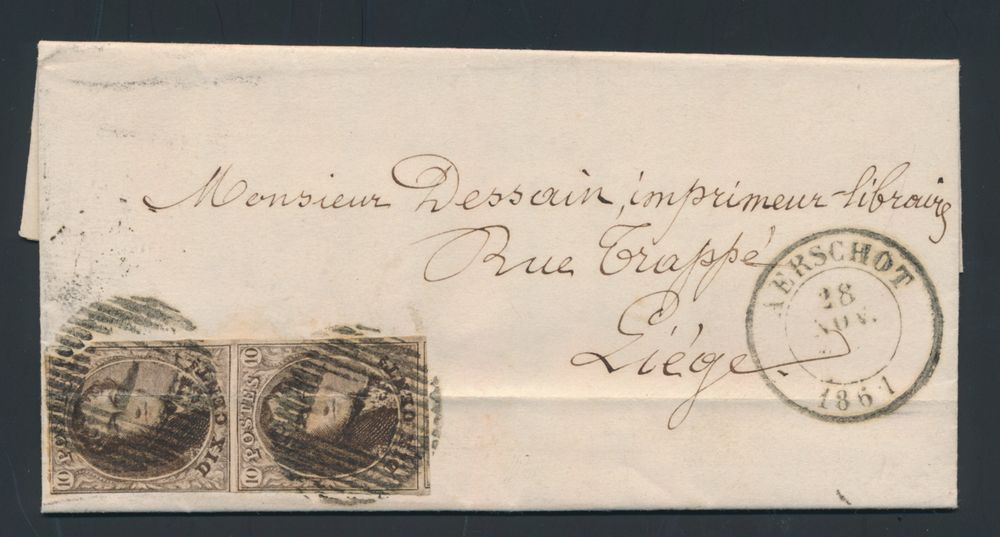 Monsieur Dessain, imprimeur-libraire
Rue Trappé
Liége.
AERSCHOT
28
NOV.
1861
10 POSTES 10
DIX CENT
10 POSTES 10
DIX CENT